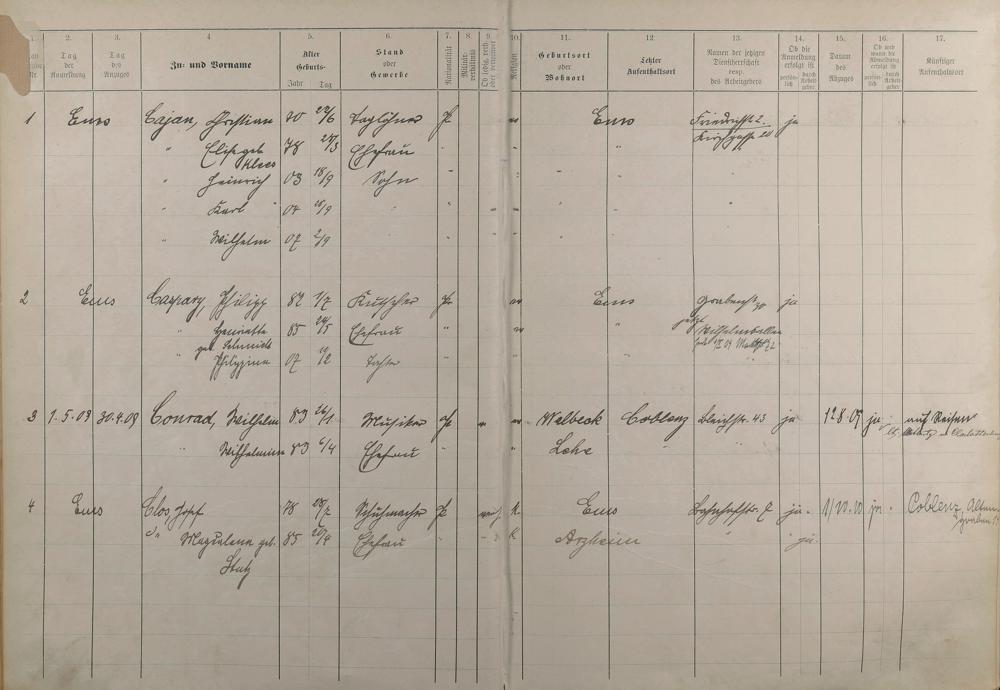 1. 2. 3. 4 5. 6. 7. 8. 9. 10. 11. 12. 13. 14. 15. 16. 17.
Nr. Tag der Anmeldung Tag des Anzuges Zu- und Vorname Alter Geburts- Jahr Tag Stand oder Gewerbe Nationalität Militärverhältnis Ob ledig, verh. oder verwitwet Religion Geburtsort oder Wohnort Letzter Aufenthaltsort Namen der jetzigen Dienstherrschaft resp. des Arbeitgebers Ob die Anmeldung erfolgt ist persönlich durch Arbeitgeber Datum des Abzuges Ob und wann die Abmeldung erfolgt ist persönlich durch Arbeitgeber Künftiger Aufenthaltsort
1 Ems Cajan, Christian 70 22/6 Taglöhner Pr Ems Friedrichstr. 2. ja
Kirchgasse 20
" Elise geb. 78 Ehefrau " "
Klees
" Heinrich 03 18/9 Sohn " "
" Karl " 04 18/9 " "
" Wilhelm 07 2/9 " "
2 Ems Caspary, Philipp 82 1/7 Kutscher Pr Ems Grabenstr. ja
" Henriette 85 24/5 Ehefrau " " jetzt Wilhelmsallee
geb. Schmidt
" Philippine 07 Tochter "
3 1.5.09 30.4.09 Conrad, Wilhelm 83 24/1 Musiker Pr Welbeck Coblenz Bleichstr. 43 ja 12.8.09 ja auf Reisen
" Wilhelmine 83 6/4 Ehefrau " Lehe "
4 Ems Clos, Josef 78 28/2 Schuhmacher Pr k. Ems Bahnhofstr. 7 ja 1/10.10 ja Coblenz, Alten-
graben
" Magdalena geb. 85 20/4 Ehefrau " k Arzheim " ja
Stutz